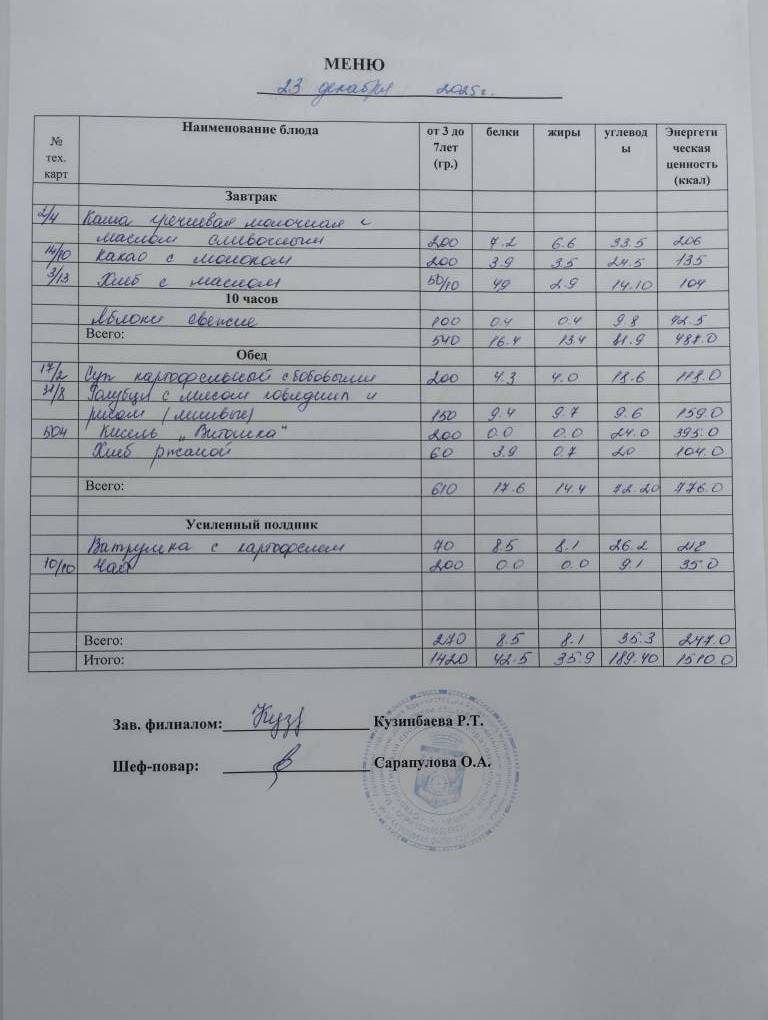 МЕНЮ
23 декабря 2025 г.
№ тех. карт Наименование блюда от 3 до 7лет (гр.) белки жиры углеводы Энергетическая ценность (ккал)
Завтрак
2/4 Каша гречневая молочная с
маслом сливочным 200 7.2 6.6 33.5 206
14/10 Какао с молоком 200 3.9 3.5 24.5 135
3/13 Хлеб с маслом 50/10 49 2.9 14.10 104
10 часов
Яблоки свежие 100 0.4 0.4 9.8 42.5
Всего: 540 16.4 13.4 81.9 487.0
Обед
17/2 Суп картофельный с бобовыми 200 4.3 4.0 18.6 118.0
31/8 Голубцы с мясом говядины и
рисом (ленивые) 150 9.4 9.7 9.6 159.0
504 Кисель „Витошка“ 200 0.0 0.0 24.0 395.0
Хлеб ржаной 60 3.9 0.7 20 104.0
Всего: 610 17.6 14.4 72.20 776.0
Усиленный полдник
Ватрушка с картофелем 70 8.5 8.1 26.2 212
10/10 Чай 200 0.0 0.0 9.1 35.0
Всего: 270 8.5 8.1 35.3 247.0
Итого: 1420 42.5 35.9 189.40 1510.0
Зав. филиалом: Куз Кузинбаева Р.Т.
Шеф-повар: Сарапулова О.А.